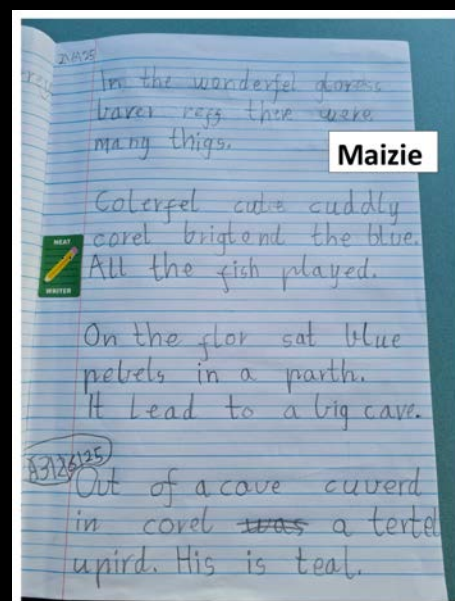 In the wonderfel
barer reff there were
many thigs.
Maizie
Colerfel cute cuddly
corel brigtond the blue.
All the fish played.
NEAT
WRITER
On the flor sat blue
pebels in a parth.
It Lead to a big cave.
Out of a cave cuverd
in corel was a tertel
upird. His is teal.